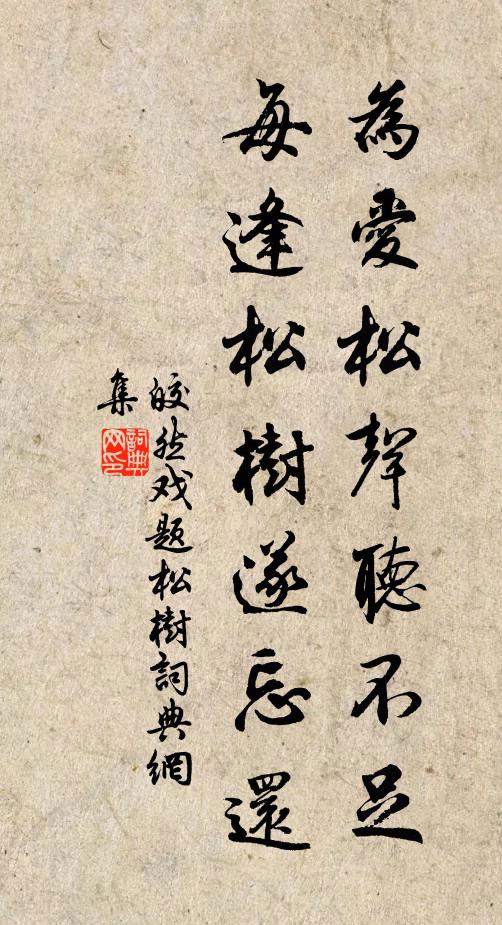 為愛松聲聽不足
每逢松樹遂忘還
皎然戏题松樹詞典網
集
詞典
网印